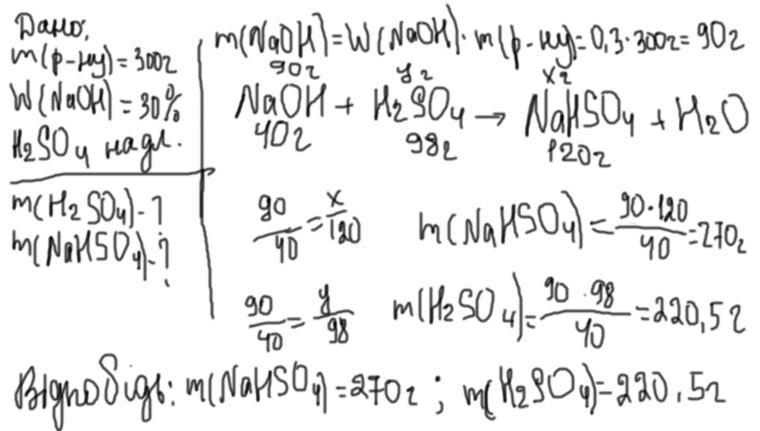 Дано:
m(р-ну)=300г
W(NaOH)=30%
H₂SO₄ надл.
m(H₂SO₄)-?
m(NaHSO₄)-?
m(NaOH)=W(NaOH)·m(р-ну)=0,3·300г=90г
90г yг xг
NaOH + H₂SO₄ → NaHSO₄ + H₂O
40г 98г 120г
90/40 = x/120 m(NaHSO₄)=90·120/40=270г
90/40 = y/98 m(H₂SO₄)=90·98/40=220,5г
Відповідь: m(NaHSO₄)=270г; m(H₂SO₄)=220,5г